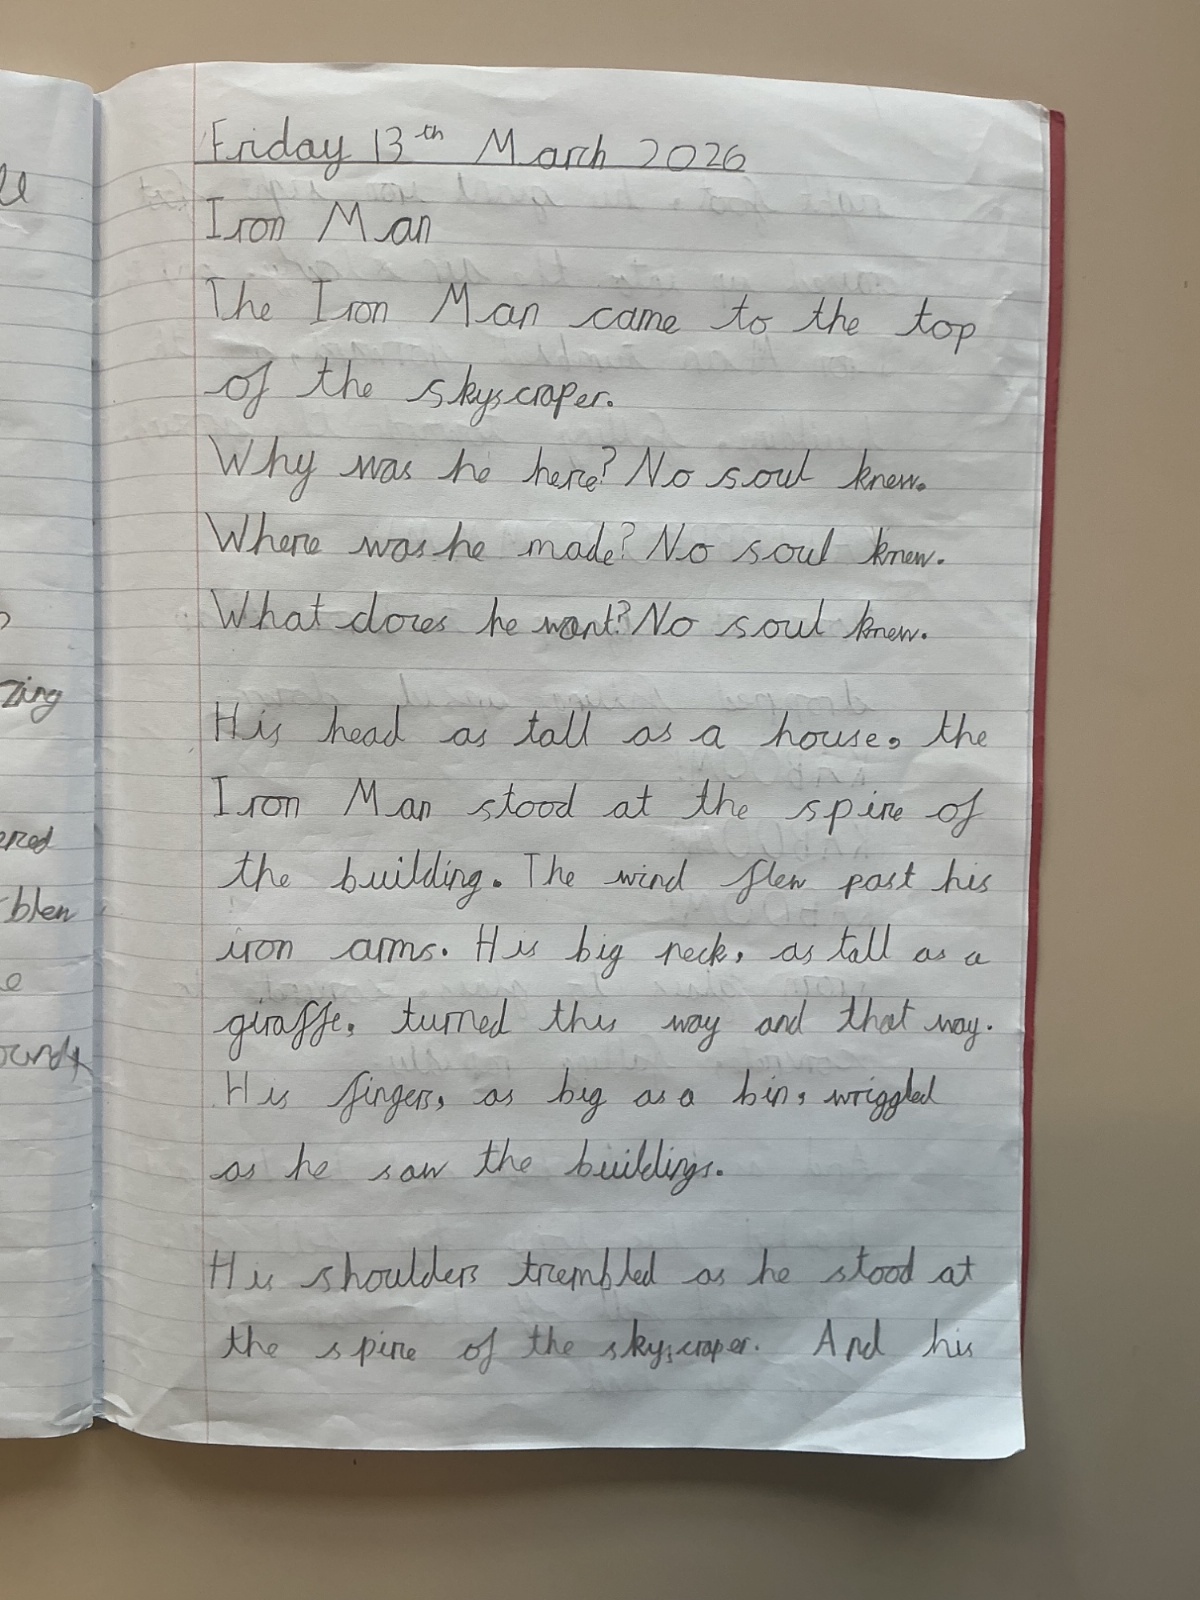 Friday 13th March 2026
Iron Man
The Iron Man came to the top
of the skyscraper.
Why was he here? No soul knew.
Where was he made? No soul knew.
What does he want? No soul knew.
His head as tall as a house, the
Iron Man stood at the spire of
the building. The wind flew past his
iron arms. His big neck, as tall as a
giraffe, turned this way and that way.
His fingers, as big as a bin, wriggled
as he saw the buildings.
His shoulders trembled as he stood at
the spire of the skyscraper. And his